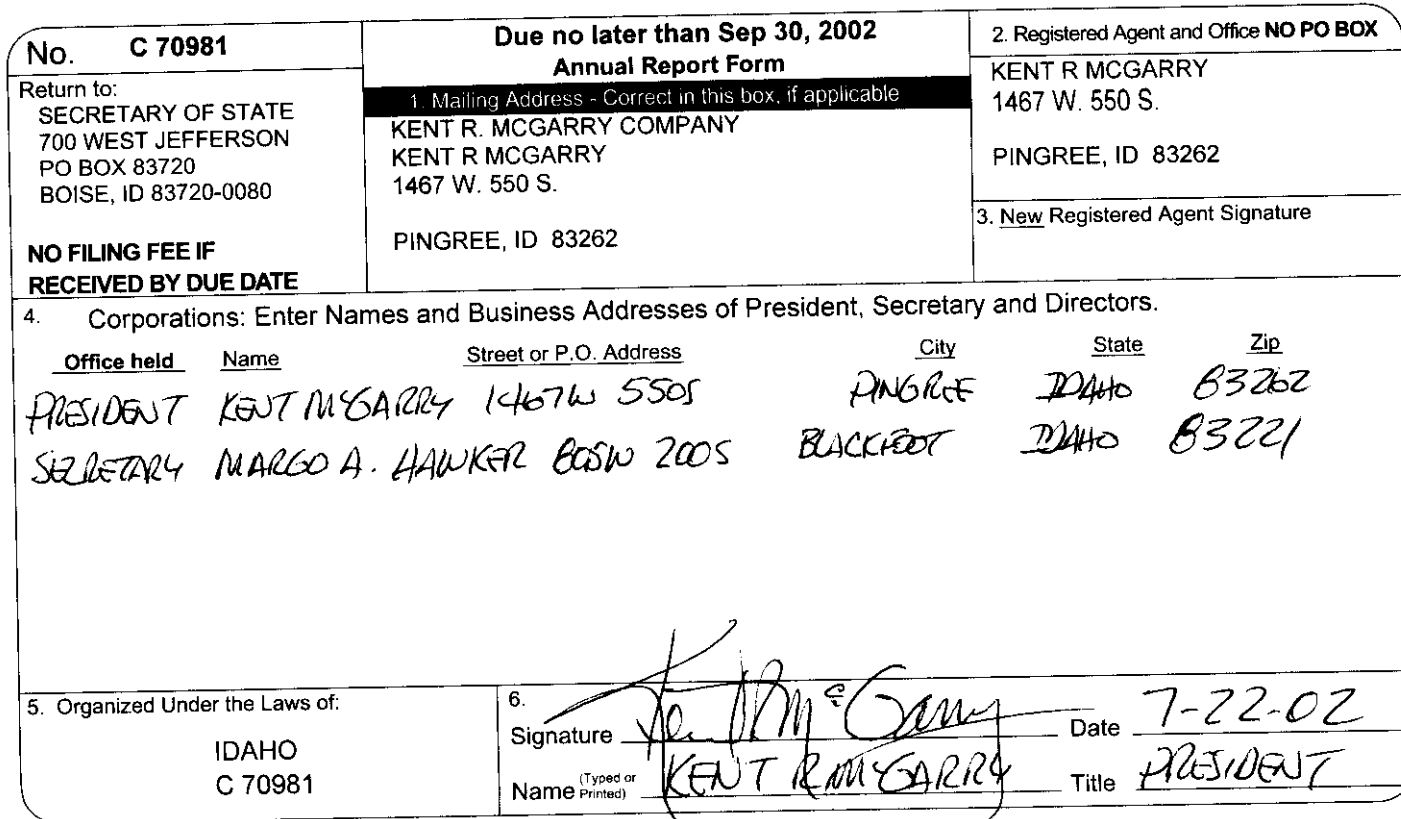 No. C 70981
Return to:
SECRETARY OF STATE
700 WEST JEFFERSON
PO BOX 83720
BOISE, ID 83720-0080
NO FILING FEE IF
RECEIVED BY DUE DATE
Due no later than Sep 30, 2002
Annual Report Form
1. Mailing Address - Correct in this box, if applicable
KENT R. MCGARRY COMPANY
KENT R MCGARRY
1467 W. 550 S.
PINGREE, ID 83262
2. Registered Agent and Office NO PO BOX
KENT R MCGARRY
1467 W. 550 S.
PINGREE, ID 83262
3. New Registered Agent Signature
4. Corporations: Enter Names and Business Addresses of President, Secretary and Directors.
Office held Name Street or P.O. Address City State Zip
PRESIDENT KENT McGARRY 1467W 550S PINGREE IDAHO 83262
SECRETARY MARGO A. HAWKER 200S BLACKFOOT IDAHO 83221
5. Organized Under the Laws of:
IDAHO
C 70981
6.
Signature Kent R McGarry Date 7-22-02
Name (Typed or Printed) KENT R McGARRY Title PRESIDENT